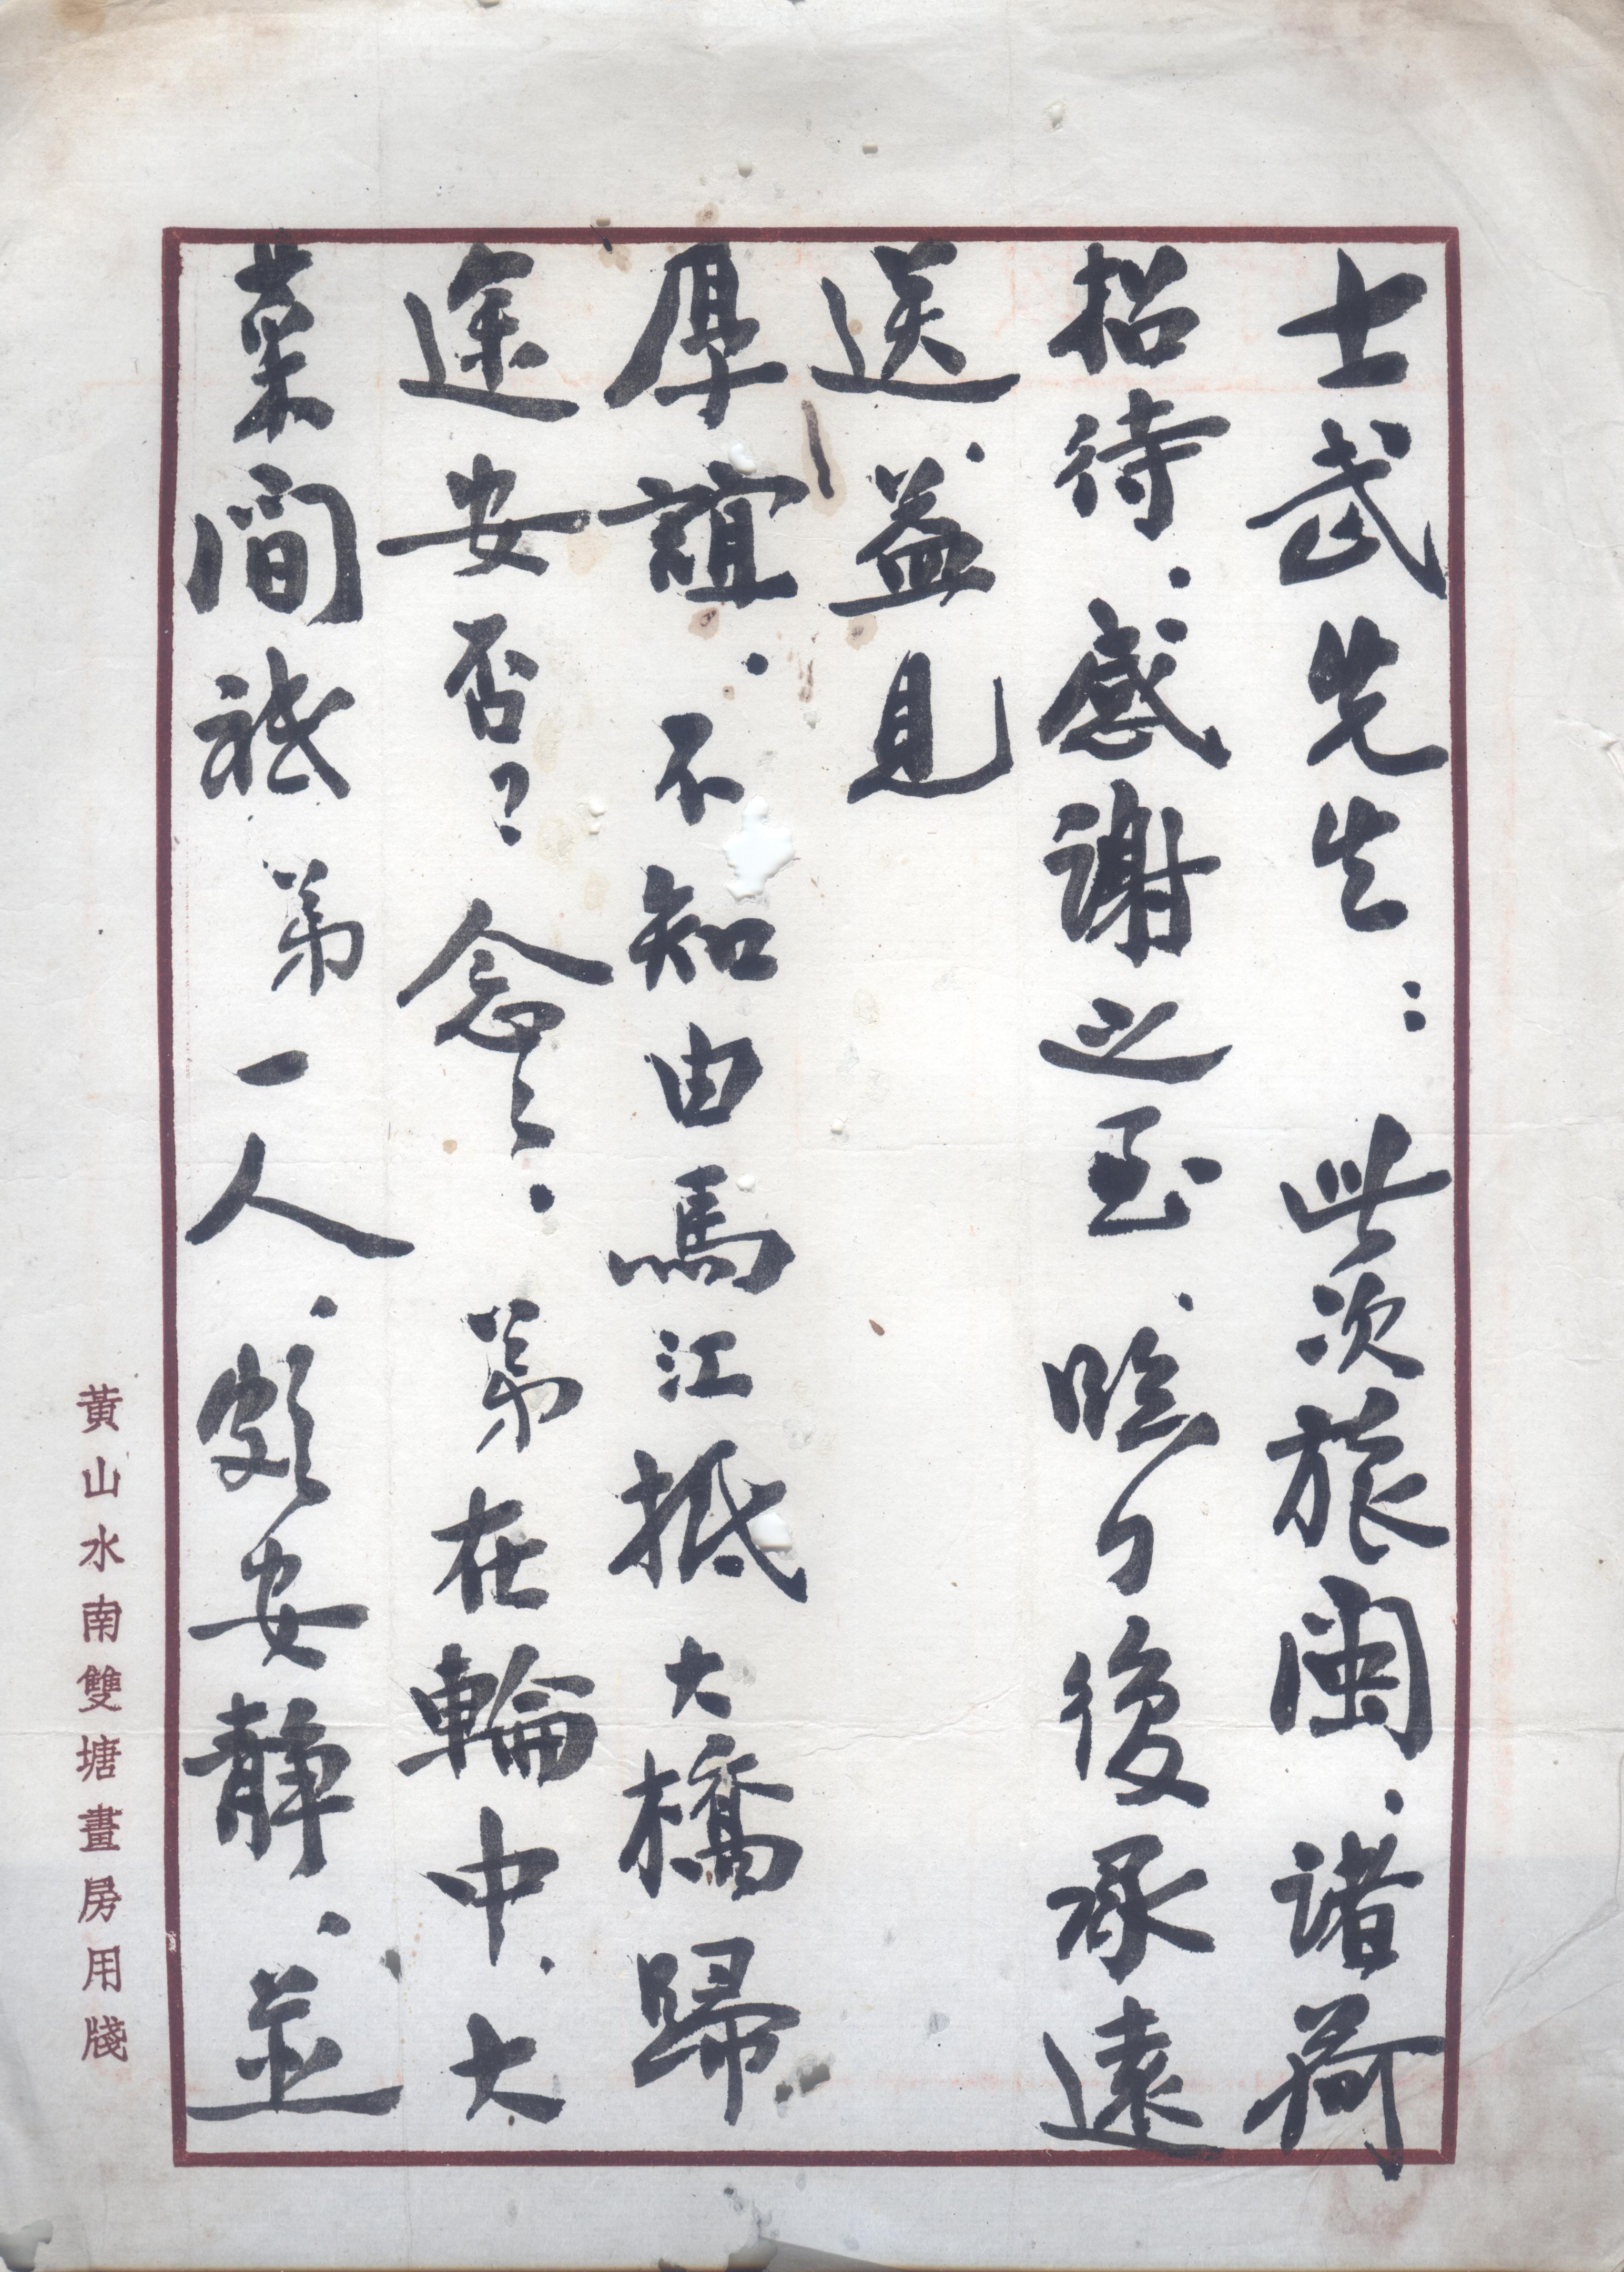 士武先生：此次旅閩．諸荷
招待．感謝之至．臨行後承遠
送．益見
厚誼．不知由馬江抵大橋歸
途安否？念々．弟在輪中．大
菜間祗弟一人．頗安静．並
黃山水南雙塘畫房用牋